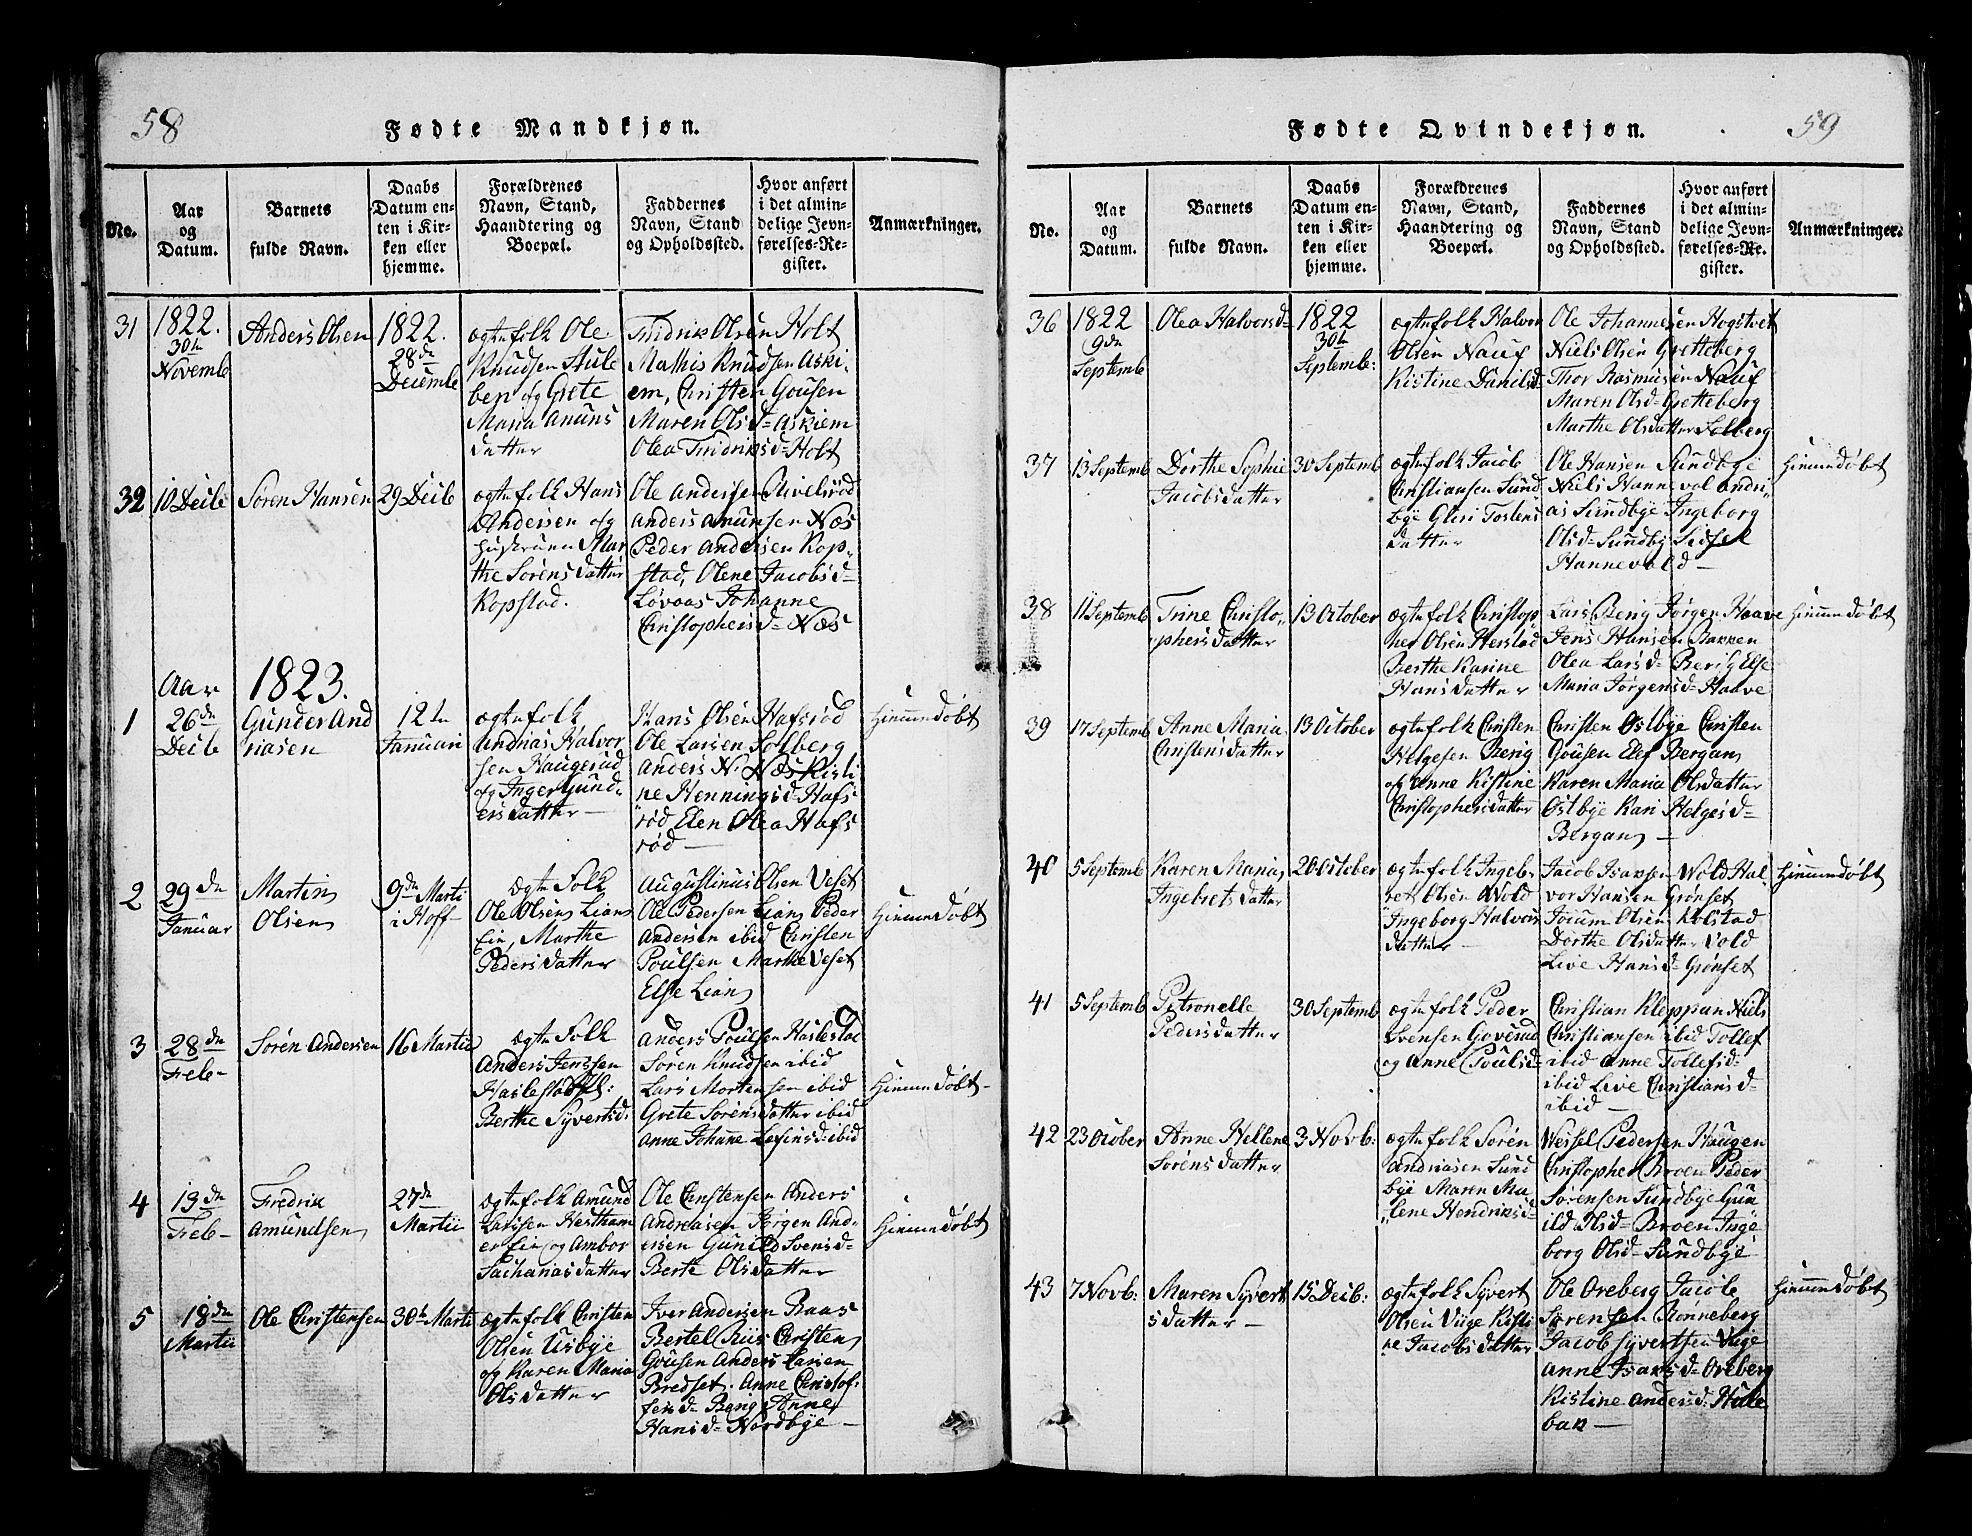 58
Fødte Mandkjøn.
No.
Aar
og
Datum.
Barnets
fulde Navn.
Daabs
Datum en-
ten i Kir-
ken eller
hjemme.
Forældrenes
Navn, Stand,
Haandtering og
Boepæl.
Faddernes
Navn, Stand
og Opholdssted.
Hvor anført
i det almin-
delige Jevn-
førelses-Re-
gister.
Anmærkninger.
31
1822.
30te
Novemb
Anders Olsen
1822.
28de
Decemb
ægtefolk Ole
Knudsen Hule
ben og Grete
Maria Amuns
datter
Fridrik Olsen Holt
Mathis Knudsen Aski-
em, Christen Gousen
Maren Olsd= Askiem
Olea Fridriksd= Holt
32
10 Decb
Søren Hansen
29 Decb
ægtefolk Hans
Andersen og
Huskrune Mar
the Sørens datter
Kopstad.
Ole Andersen
Anders Amunsen Næs
Peder Andersen Kop-
stad, Olene Jacobsd=
Løvaas Johanne
Christophersd= Næs
Aar 1823.
1
26de
Decb
Gunder And
riasen
12te
Januari
ægtefolk
Andrias Halvor
sen Haugerud
og Inger Gund-
ersdatter
Hans Olsen Hafsrød
Ole Larsen Solberg
Anders N. Næs Kisti
ne Henningsd= Hafs
rød Elen Olea Hafs
rød
Hiemmedøbt
2
29de
Januar
Martin
Olsen
9de Marti
i Hoff
ægte Folk
Ole Olsen Lian
Eie, Marthe
Peders datter
Augustinus Olsen Veset
Ole Pedersen Lian Peder
Andersen ibid Christen
Poulsen Marthe Veset
Else Lian
Hiemmedøbt
3
28de
Feb
Søren Andersen
16 Martii
ægte Folk
Anders Jenssen
Haslestad
Berthe Syvertsd:
Anders Poulsen Haslestad
Søren Knudsen ibid
Lars Mortensen ibid
Grete Sørensdatter ibid
Anne Johanne ibid
Hiemmedøbt
4
13de
Feb
Fredrik
Amundsen
27de
Martii
ægtefolk Amund
Larssen Hestham
er Eie og Ambor
Sacharias datter
Ole Christensen Anders
Andreasen Jørgen And-
ersen Gunild Svensd=
Berte Olsdatter
Hiemmedøbt
5
18de
Martii
Ole Christensen
30te Marti
ægtefolk Christen
Olsen Usbye
og Karen Maria
Olsdatter
Iver Andersen Raas
Bertel Riis Christen
Gousen Anders Larsen
Bredset. Anne Christof-
fersd= Berig Anne
Hansd= Nordbye
59
Fødte Qvindekjøn.
No.
Aar
og
Datum.
Barnets
fulde Navn.
Daabs
Datum en-
ten i Kir-
ken eller
hjemme.
Forældrenes
Navn, Stand,
Haandtering og
Boepæl.
Faddernes
Navn, Stand
og Opholdssted.
Hvor anført
i det almin-
delige Jevn-
førelses-Re-
gister.
Anmærkninger.
36
1822
9de
Septemb
Olea Halvorsd=
1822
30te
Septemb:
ægtefolk Halvor
Olsen Nauf
Kistine Danilsd=
Ole Johannesen Hogstvet
Niels Olsen Gretteberg
Thor Rasmusen Nauf
Maren Olsd= Gretteberg
Marthe Olsdatter Solberg
37
13 Septemb
Dorthe Sophie
Jacobsdatter
30 Septemb
ægtefolk Jacob
Christiansen Sund
bye Gluri Tostens
datter
Ole Hansen Sundbye
Niels Hannevol Andri-
as Sundbye Ingeborg
Olsd= Sundby Sidsel
Hannevold
Hiemmedøbt
38
11 Septemb
Trine Christo-
phersdatter
13 October
ægtefolk Christop
her Olsen Herstad
Berthe Karine
Hans datter
Lars Berig Jørgen Haave
Jens Hansen Bakken
Olea Larsd= Berig Else
Maria Jørgensd= Haave
Hiemmedøbt
39
17 Septemb
Anne Maria
Christensdatter
13 October
ægtefolk Christen
Helgesen Berig
og Anne Kistine
Christophersdatter
Christen Østbye Christen
Gousen Elef Bergan
Karen Maria Olsdatter
Østbye Kari Helgesd=
Bergan
40
5 Septemb
Karen Maria
Ingebretsdatter
20 October
ægtefolk Ingeb-
ret Olsen Wold
Ingeborg Halvors
datter
Jacob Isaksen Wold Hal-
vor Hansen Grønset
Jocum Olsen Kolstad
Dorthe Olsdatter Vold
Live Hansd= Grønset
Hiemmedøbt
41
5 Septemb
Petronelle
Pedersdatter
30 Septemb
ægtefolk Peder
Svensen Goverud
og Anne Poulsd=
Christian Kleppan Niels
Christiansen ibid Tollef
ibid Anne Tollefsd=
ibid Live Christiansd=
ibid
42
23 October
Anne Hellene
Sørens datter
3 Novb:
ægtefolk Søren
Andriasen Sund
bye Maren Ma-
lene Hendriksd=
Wessel Pedersen Haugen
Christopher Broen Peder
Sørensen Sundbye Gun
ild Olsd= Broen Inge
borg Olsd= Sundbye
43
7 Novb:
Maren Syvert
sdatter
15 Decb:
ægtefolk Syvert
Olsen Viige Kisti
ne Jacobsdatter
Ole Oreberg Jacob
Sørensen Rønneberg
Jacob Syvertsen Viige
Anne Isaksd= Oreberg
Kistine Andersd: Hule
bak
Hiemmedøbt